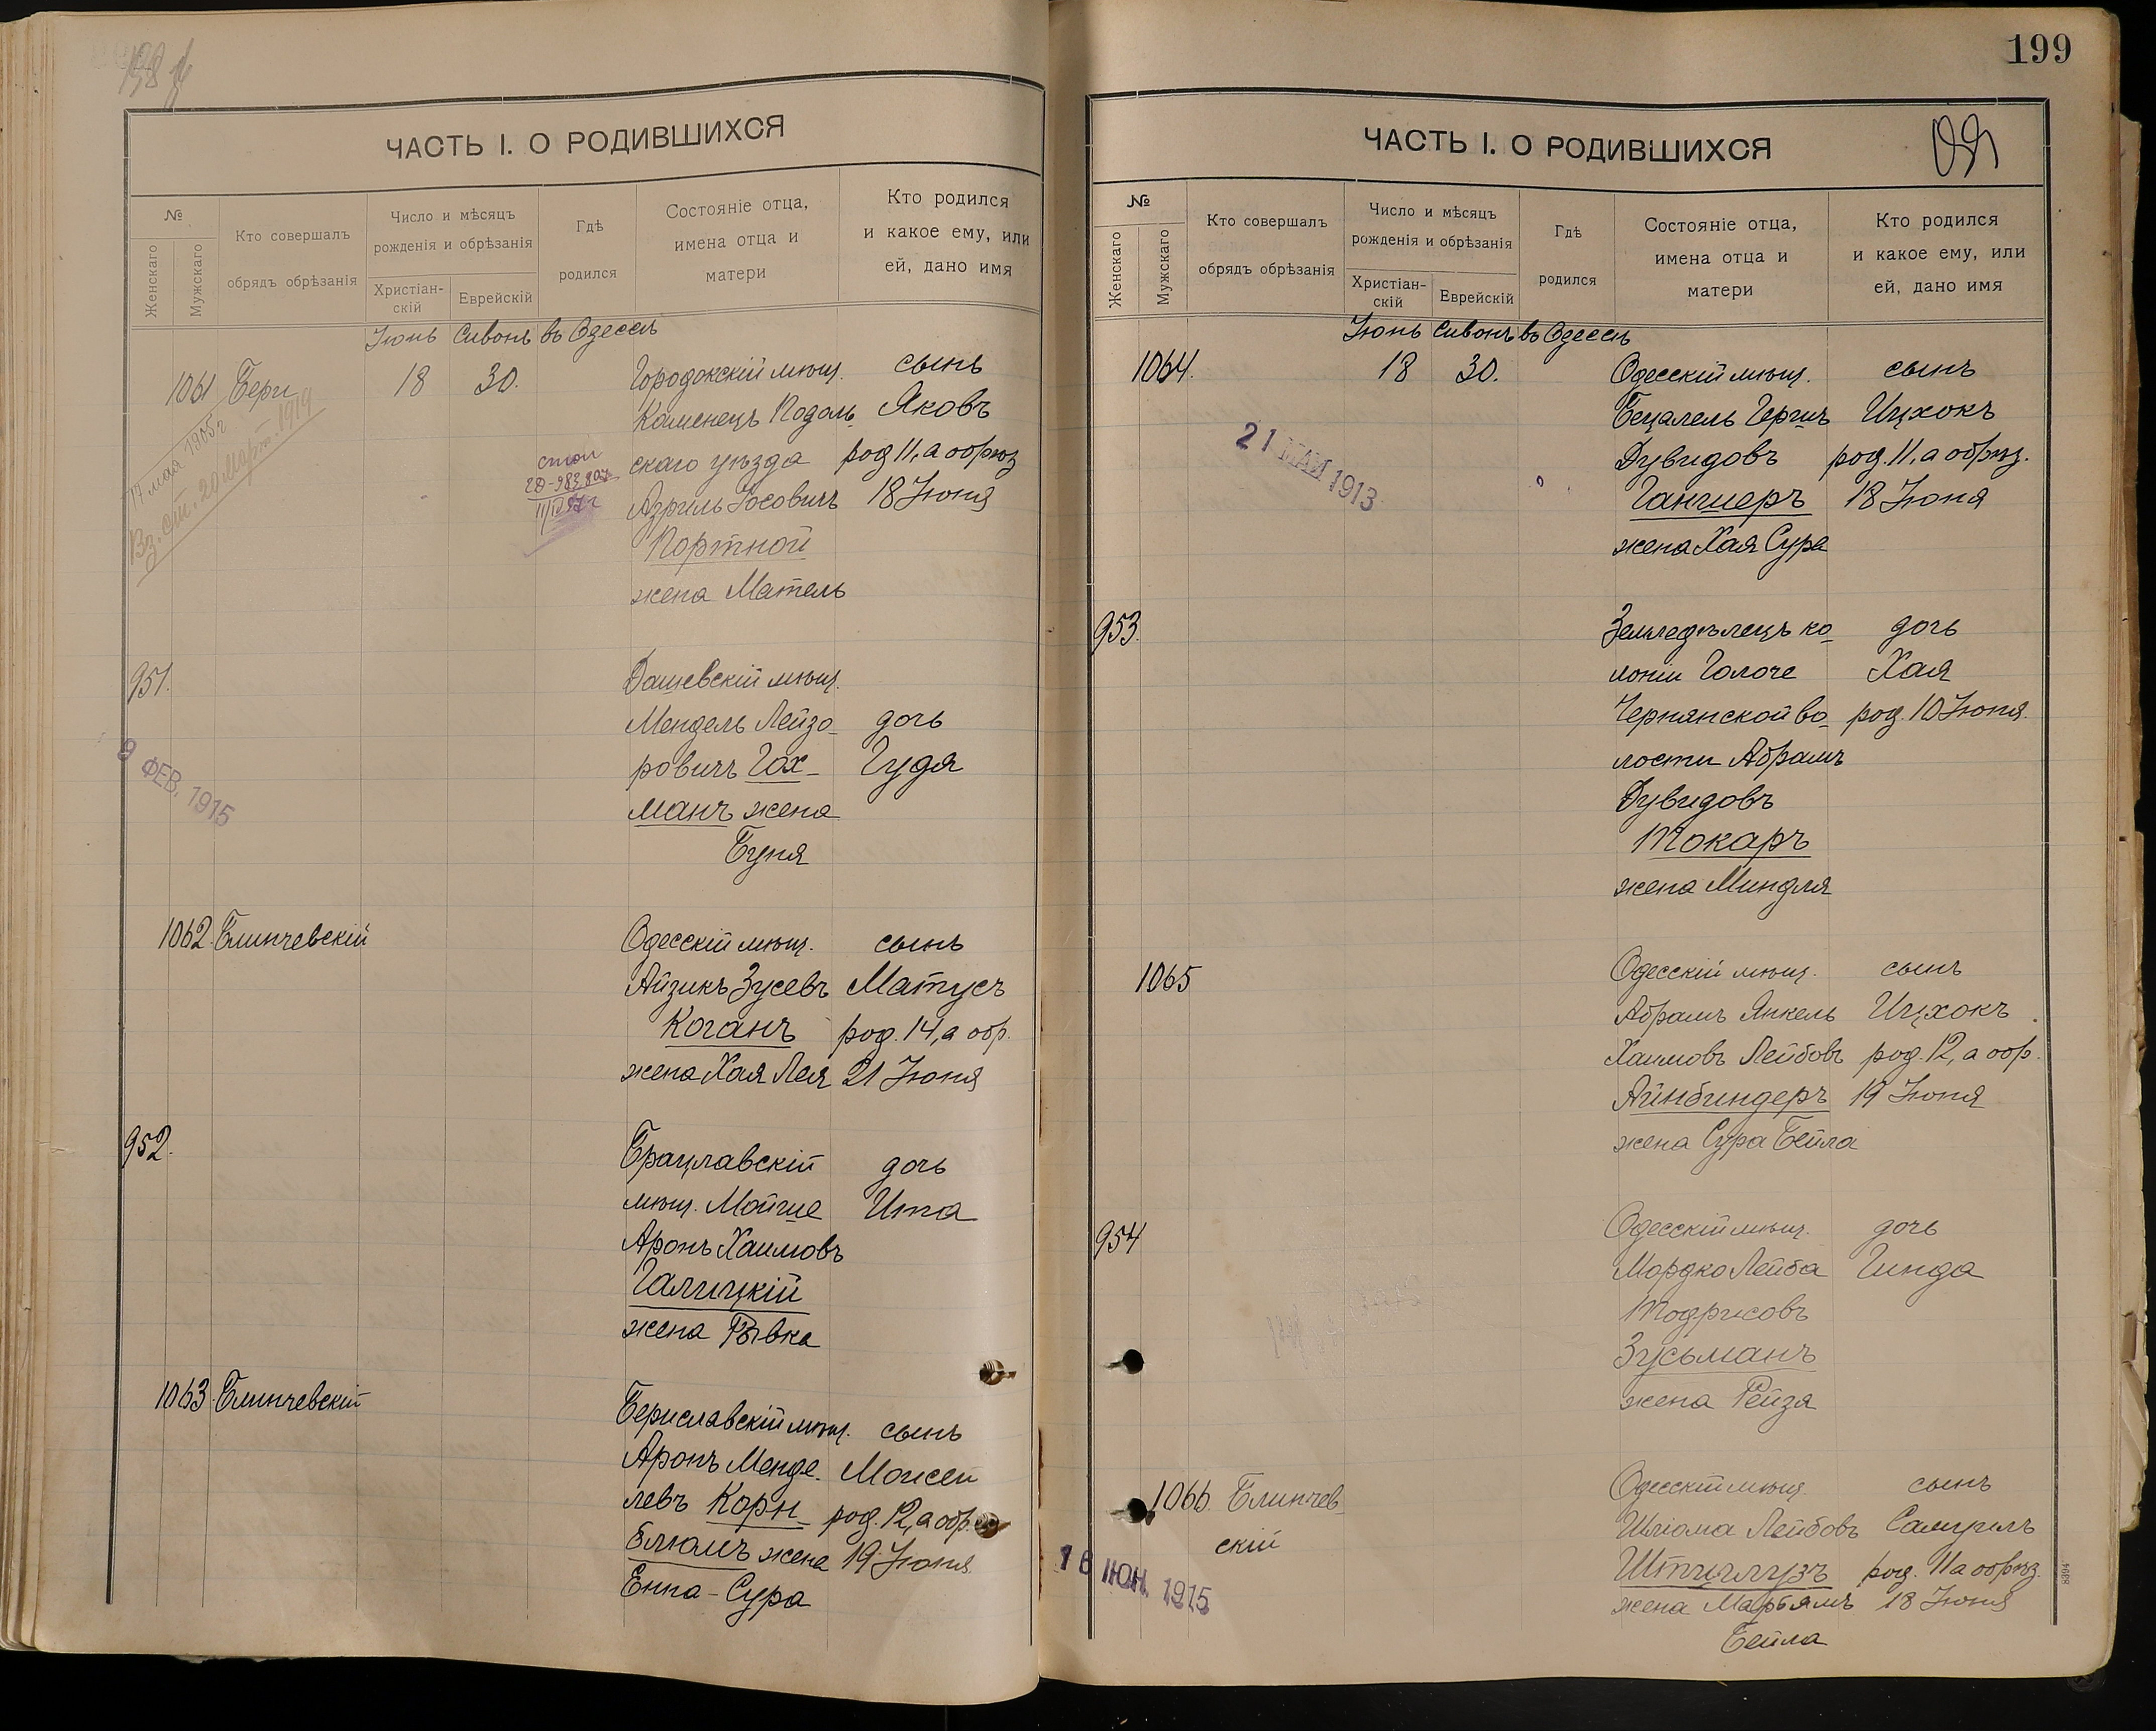 ЧАСТЬ I. О РОДИВШИХСЯ
№
Женскаго
Мужскаго
Кто совершалъ
обрядъ обрѣзанія
Число и мѣсяцъ
рожденія и обрѣзанія
Христіан-
скій
Еврейскій
Гдѣ
родился
Состояніе отца,
имена отца и
матери
Кто родился
и какое ему, или
ей, дано имя
Іюнь Сивонъ въ Одессѣ
1061 Бери 18 30. Городокскій мѣщ. сынъ
Каменецъ Подоль- Яковъ
скаго уѣзда род 11, а обрѣз
Азриль Іосовичъ 18 Іюня
Портной
жена Матель
17 мая 1905 г
Вз. ст. 20 Март. 1919
951. Дашевскій мѣщ.
Мендель Лейзо- дочь
ровичъ Гох- Гудя
манъ жена
Буня
9 ФЕВ. 1915
1062. Блинчевскій Одесскій мѣщ. сынъ
Айзикъ Зусевъ Матусъ
Коганъ род. 14, а обр.
жена Хая Лея 21 Іюня
952. Брацлавскій дочь
мѣщ. Мойше Ита
Аронъ Хаимовъ
Галицкій
жена Рывка
1063. Блинчевскій Бериславскій мѣщ. сынъ
Аронъ Менде- Моисей
левъ Корн- род. 12, а обр.
блюмъ жена 19 Іюня
Енна-Сура
199
ЧАСТЬ I. О РОДИВШИХСЯ
№
Женскаго
Мужскаго
Кто совершалъ
обрядъ обрѣзанія
Число и мѣсяцъ
рожденія и обрѣзанія
Христіан-
скій
Еврейскій
Гдѣ
родился
Состояніе отца,
имена отца и
матери
Кто родился
и какое ему, или
ей, дано имя
Іюнь Сивонъ въ Одессѣ
1064. 18 30. Одесскій мѣщ. сынъ
Бецалель Гершъ Ицхокъ
Дувидовъ род. 11, а обрѣз.
Гангиеръ 18 Іюня
жена Хая Сура
21 МАЙ 1913
953. Земледѣлецъ ко- дочь
лоніи Голоче Хая
Чернянской во- род. 10 Іюня.
лости Абрамъ
Дувидовъ
Токаръ
жена Миндля
1065 Одесскій мѣщ. сынъ
Абрамъ Янкель Ицхокъ
Хаимовъ Лейбовъ род. 12, а обр.
Айнбиндеръ 19 Іюня
жена Сура Бейла
954 Одесскій мѣщ. дочь
Мордко Лейба Гинда
Тодрисовъ
Зусьманъ
жена Рейзя
1066. Блинчев- Одесскій мѣщ. сынъ
скій Шліома Лейбовъ Самуилъ
род. 11 а обрѣз.
жена Марьямъ 18 Іюня
Бейла
16 ІЮН. 1915